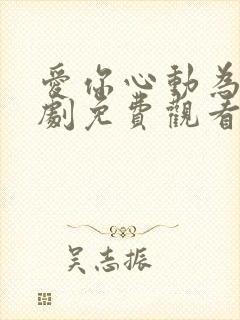 愛你心動為
劇免費觀看
吳志振